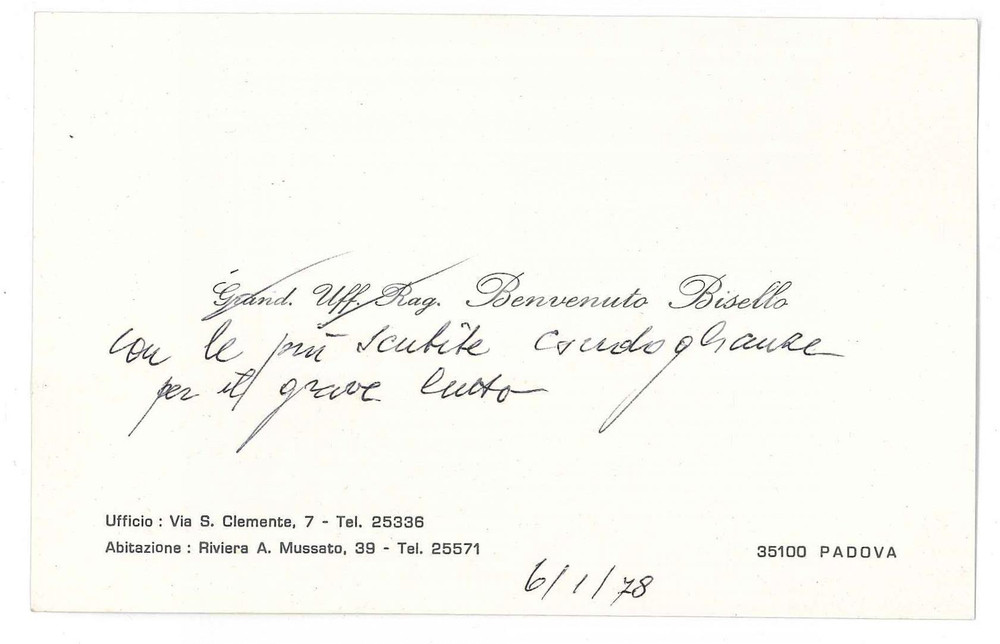 Grand. Uff. Rag. Benvenuto Bisello
con le più sentite condoglianze
per il grave lutto
Ufficio : Via S. Clemente, 7 - Tel. 25336
Abitazione : Riviera A. Mussato, 39 - Tel. 25571
35100 PADOVA
6/1/78